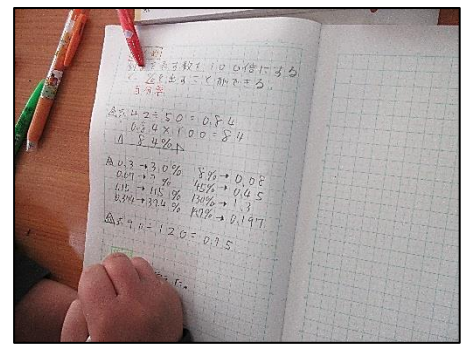 表す数を100倍にする
と、 を出すことができる。
百分率
式42÷50=0.84
0.84×100=84
A 84%
0.3→30% 8%→0.08
0.07→7% 45%→0.45
1.15→115% 130%→1.3
0.374→37.4% 19.7%→0.197
式90÷120=0.75
た。